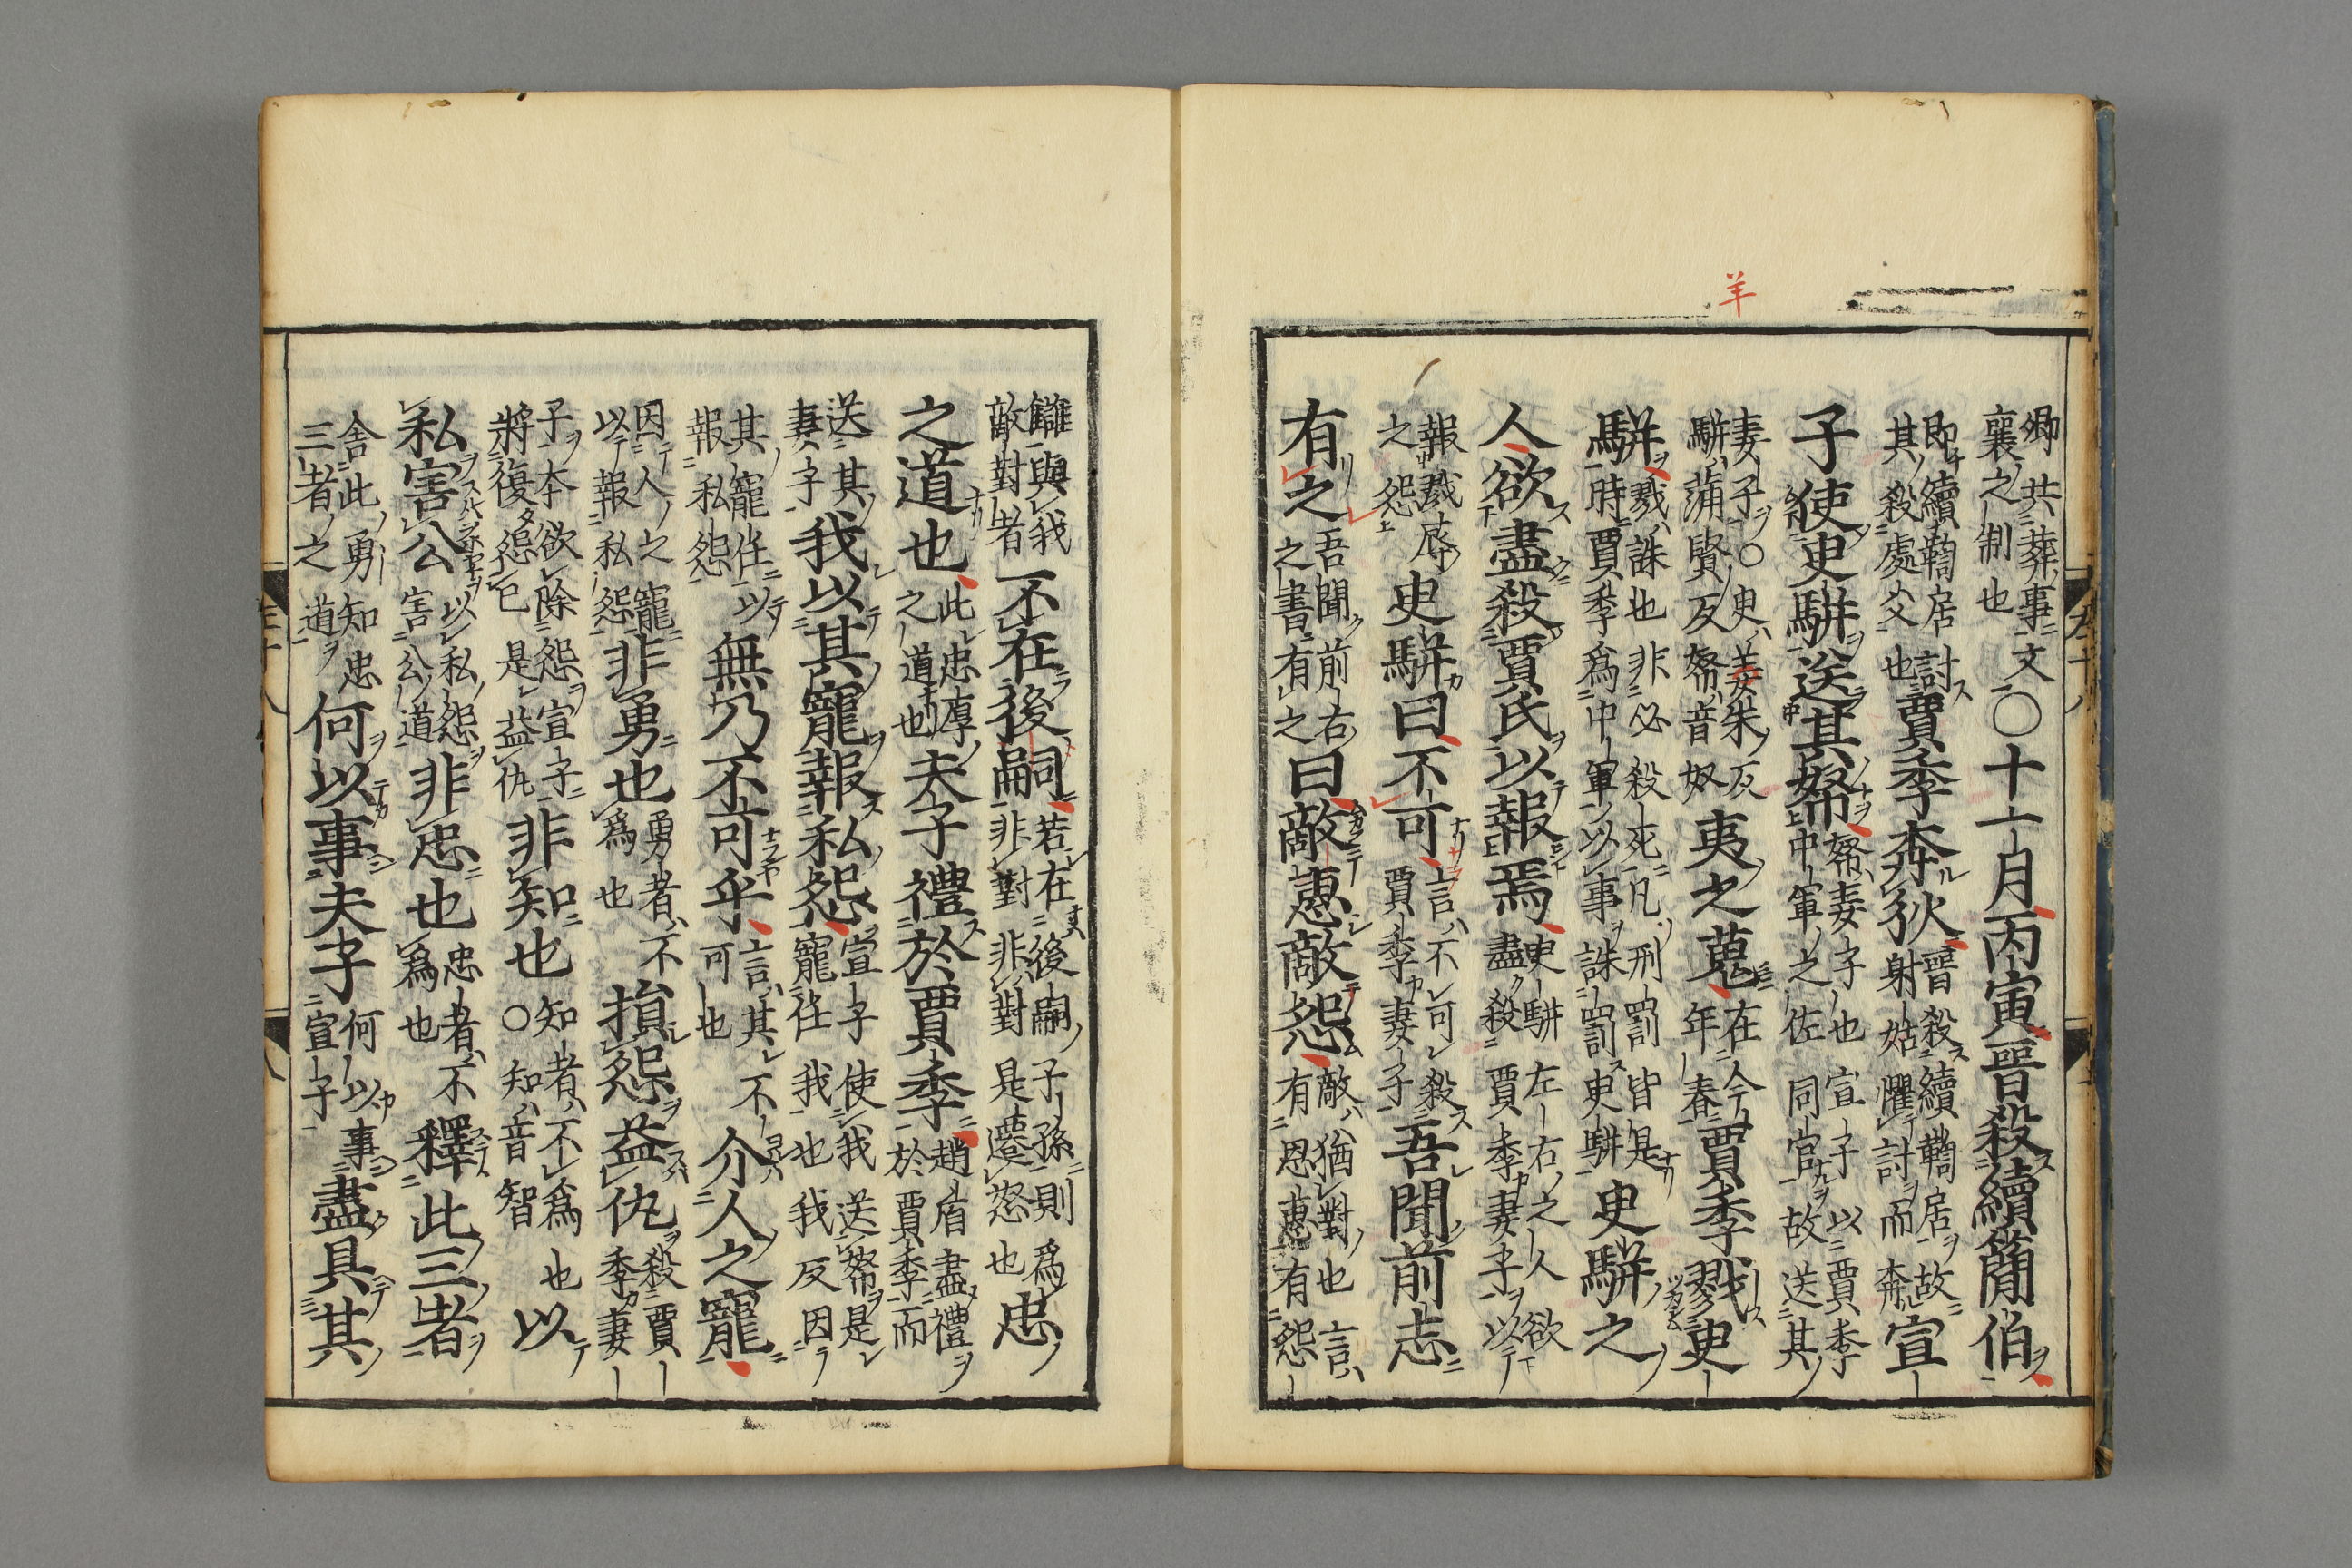 羊
卿共葬事文
襄之制也
〇十一月丙寅晋殺續簡伯
即續鞫居討
其殺處父也
賈季奔狄
晋殺續鞫居故
射姑懼討而奔
宣
子使史駢送其帑
帑妻子也宣子以賈季
中軍之佐同官故送其
妻子〇史羊朱反
駢蒲賢反帑音奴
夷之蒐
在今
年春
賈季戮史
駢
戮誅也非必殺死凡刑罰皆是
時賈季為中軍以事誅罰史駢
史駢之
人欲盡殺賈氏以報焉
史駢左右之人欲
盡殺賈季妻子以
報戮辱
之怨
史駢曰不可
言不可殺
賈季妻子
吾聞前志
有之
吾聞前右
之書有之
曰敵惠敵怨
敵猶對也言
有恩惠有怨
讎與我
敵對者
不在後嗣
若在後嗣子孫則為
非對非對是遷怒也
忠
之道也
此忠厚
之道也
夫子禮於賈季
趙盾盡禮
於賈季而
送其
妻子
我以其寵報私怨
宣子使我送帑是
寵任我也我反因
其寵任以
報私怨
無乃不可乎
言其不
可也
介人之寵
因人之寵
以報私怨
非勇也
勇者不
為也
損怨益仇
殺賈
季妻
子本欲除怨宣子
將復怨已是益仇
非知也
知者不為也
〇知音智
以
私害公
以私怨
害公道
非忠也
忠者不
為也
釋此三者
舍此勇知忠
三者之道
何以事夫子
何以事
宣子
盡具其